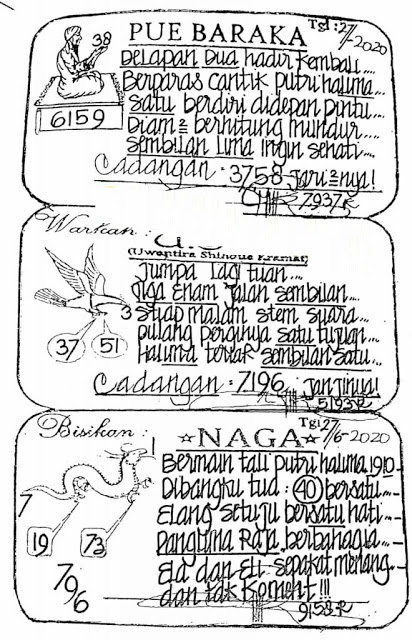 PUE BARAKA
Tgl: 27/-2020
38
6159
Delapan Dua hadir Kembali....
Berparas cantik putri haluma...
satu berdiri didepan pintu...
Diam² berhitung mundur....
sembilan luma Ingin sehati...
Cadangan : 3758 Jari²nya!
7937.R
Warkah :
(Uwentira Shinoue Kramat)
Jumpa lagi tuan...
Tiga Enam Jalan sembilan...
3 setiap malam stem suara...
pulang perginya satu tujuan...
37
51
Haluma terbar sembilan satu...
Cadangan : 7196 Jan Jinya!
5193.R
Bisikan :
☆NAGA☆
Tgl 27/6-2020
Bermain tali putri haluma 1910-
Dibangku tua : 40 bersatu...-
7
Elang setuju bersatu hati...-
19
73
Panglima Raja berbahagia...-
796
Ela dan Eli sepakat menang-
dan tak Koment!!!
9158.R